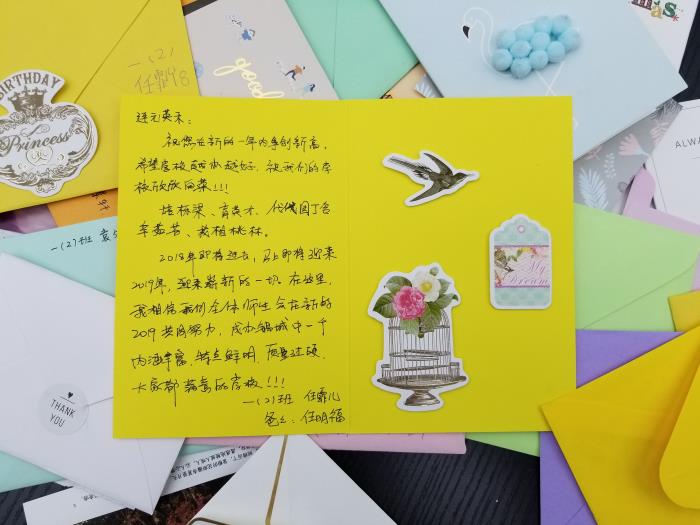 BIRTHDAY
Princess
一(2)
任霏98
good
mas
ALWA
一(2)班
THANK
YOU
祝您在新的一年内事创新高,
希望学校越办越好,祝我们的学
校欣欣向荣!!!
培栋梁、育英才、代代园丁含
辛茹苦、栽植桃林。
2018年即将过去,马上即将迎来
2019年,迎来崭新的一切。在这里,
我相信我们全体师生会在新的
2019共同努力,成办锦城中一个
内涵丰富,特点鲜明,质量过硬,
大家都羡慕的学校!!!
一(2)班 任霏儿
爸爸:任明福
My
Dream